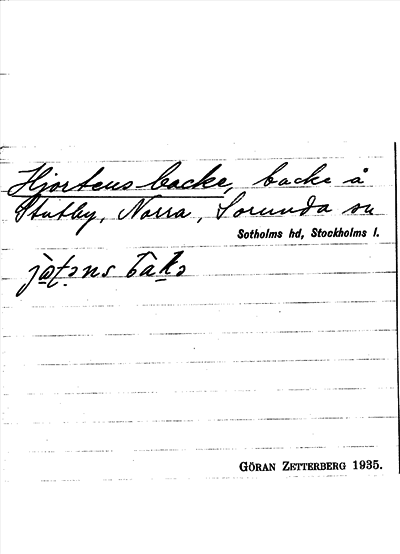 Hjortens backe, backe å
Stutby, Norra, Sorunda sn
Sotholms hd, Stockholms l.
GÖRAN ZETTERBERG 1935.